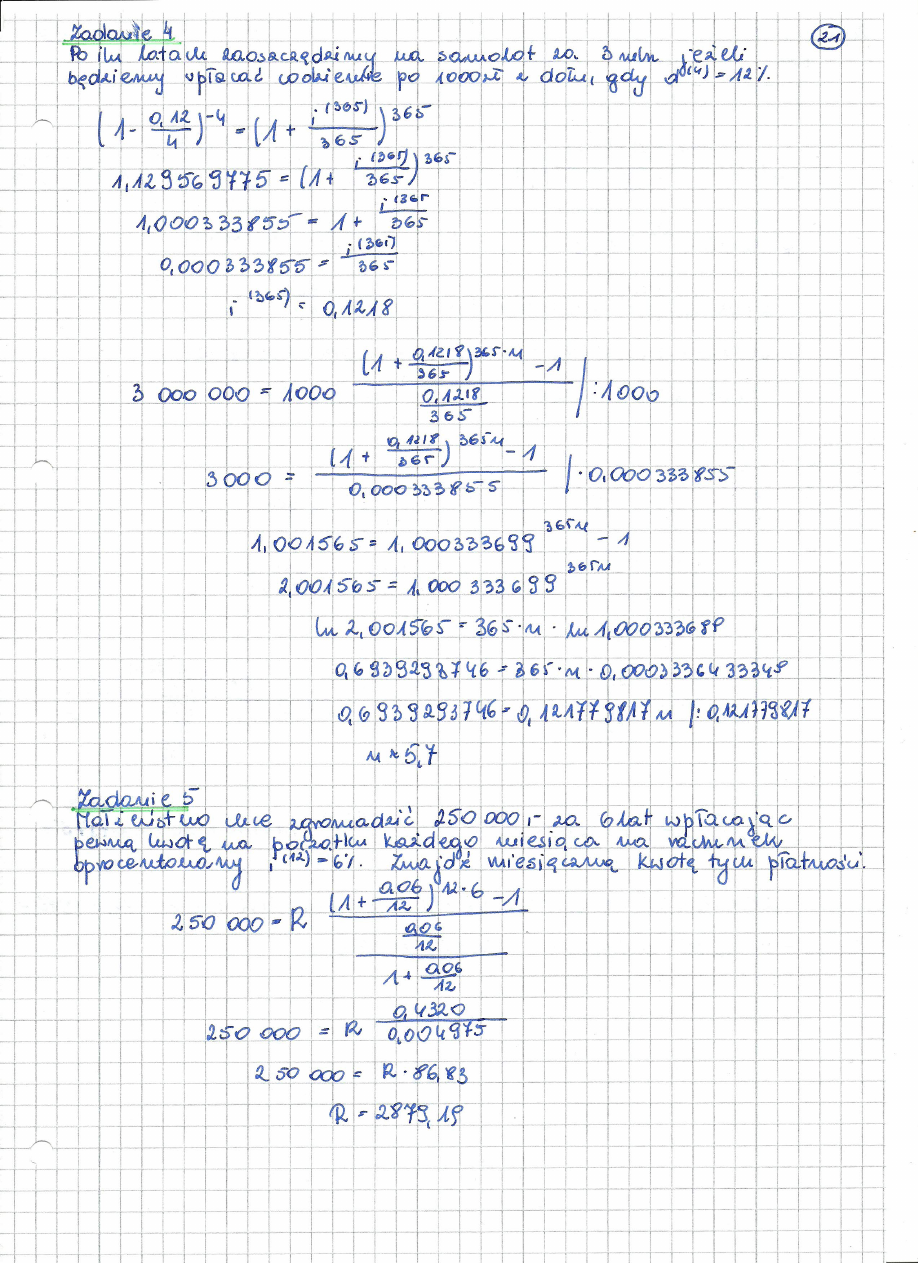 21
Zadanie 4
Po ilu latach zaoszczędzimy na samolot za 3 mln jeżeli
będziemy wpłacać codziennie po 1000zł z dołu, gdy d^(4) = 12%.
(1 - 0,12/4)^-4 = (1 + i^(365)/365)^365
1,129569775 = (1 + i^(365)/365)^365
1,000333855 = 1 + i^(365/365
0,000333855 = i^(365)/365
i^(365) = 0,1218
3 000 000 = 1000 ((1 + 0,1218/365)^365·n - 1)/(0,1218/365) |:1000
3000 = ((1 + 0,1218/365)^365n - 1)/0,000333855 |·0,000333855
1,001565 = 1,000333699^365n - 1
2,001565 = 1,000333699^365n
ln 2,001565 = 365·n · ln 1,000333699
0,6939293746 = 365·n·0,0003336433349
0,6939293746 = 0,121779817 n |:0,121779817
n ≈ 5,7
Zadanie 5
Małżeństwo chce zgromadzić 250 000,- za 6 lat wpłacając
pewną kwotę na początku każdego miesiąca na rachunek
oprocentowany i^(12) = 6%. Znajdź miesięczną kwotę tych płatności.
250 000 = R ((1 + 0,06/12)^12·6 - 1)/((0,06/12)/(1 + 0,06/12))
250 000 = R 0,4320/0,004975
250 000 = R · 86,83
R = 2879,19